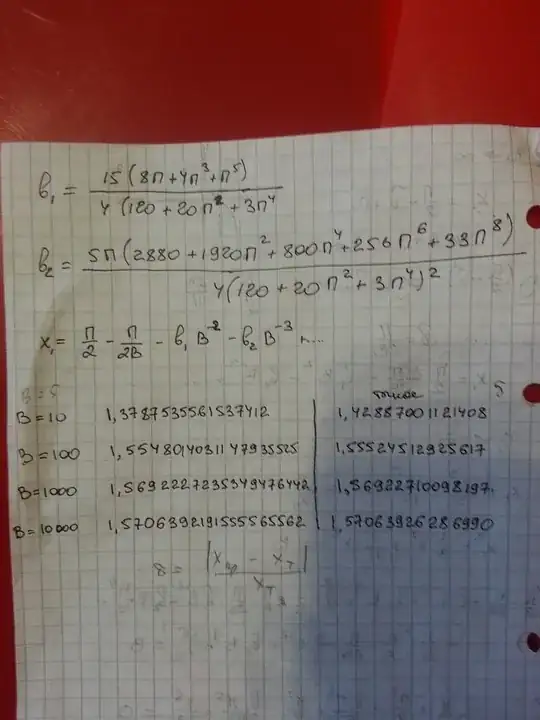 в₁ = 15(8π+4π³+π⁵) / 4(120+20π²+3π⁴
в₂ = 5π(2880+1920π²+800π⁴+256π⁶+33π⁸) / 4(120+20π²+3π⁴)²
x₁ = π/2 - π/2B - в₁B⁻² - в₂B⁻³ + ...
B=5
точное 5
B=10 1,3787535561537412 1,42887001121408
B=100 1,5548014031147935525 1,55524512925617
B=1000 1,5692227235349476442 1,56922710098197
B=10000 1,5706392191555565562 1,57063926286990
δ = |x - x_т| / x_т